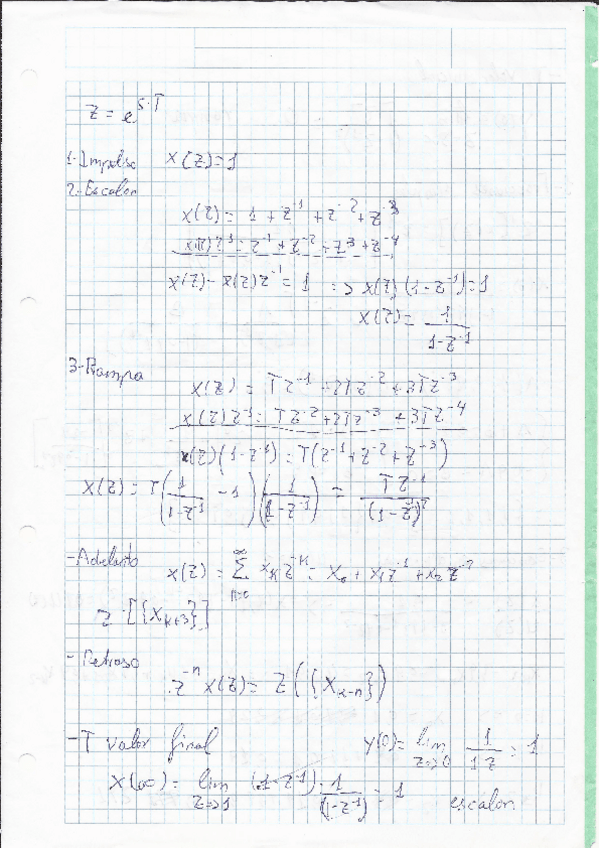 Z = e^{S·T}
1-Impulso X(Z)=1
2-Escalon
X(Z)= 1 + z^{-1} + z^{-2} + z^{-3}
X(Z)Z^{-1} = z^{-1} + z^{-2} + z^{-3} + z^{-4}
X(Z) - X(Z)Z^{-1} = 1 => X(Z)(1-Z^{-1})=1
X(Z)= 1/(1-Z^{-1})
3-Rampa
X(Z) = TZ^{-1} + 2TZ^{-2} + 3TZ^{-3}
X(Z)Z^{-1} = TZ^{-2} + 2TZ^{-3} + 3TZ^{-4}
X(Z)(1-Z^{-1}) = T(Z^{-1} + Z^{-2} + Z^{-3})
X(Z) = T(1/(1-Z^{-1}) - 1)(1/(1-Z^{-1})) = TZ^{-1}/(1-Z^{-1})^2
-Adelanto
X(Z) = ∑ x_k z^{-k} = x_0 + x_1 z^{-1} + x_2 z^{-2}
Z·[{X_{k+3}}]
-Retraso
Z^{-n} X(Z) = Z({X_{k-n}})
-T valor final Y(0)= lim_{Z→0} = 1
X(∞) = lim_{Z→1} (1-Z^{-1})·1/(1-Z^{-1}) = 1 escalon